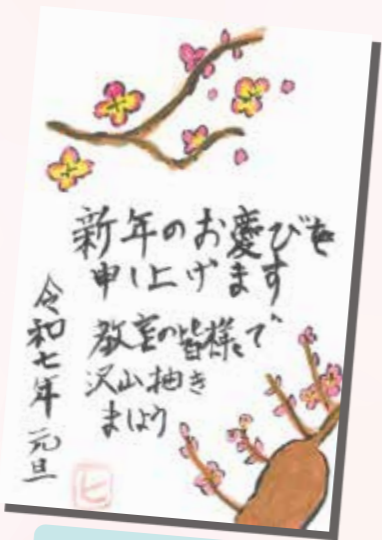 新年のお慶びを
申し上げます
教室の皆様で
沢山抽き
ましょう
令和七年 元旦